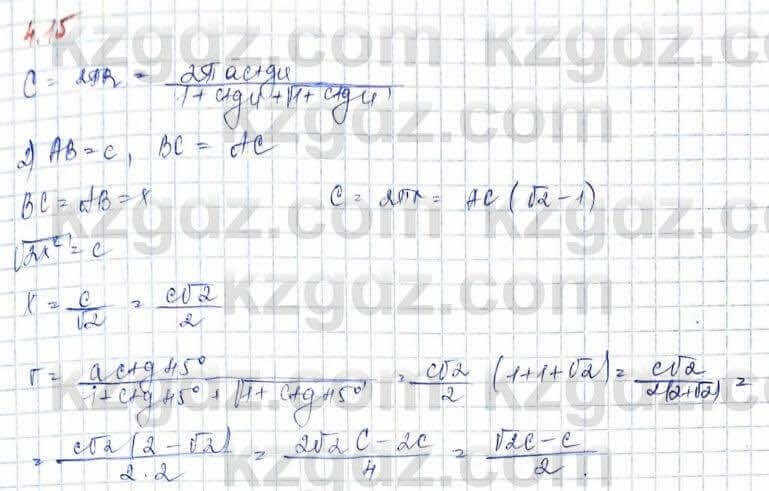 4.15
C = 2πR = 2π a ctg u / 1 + ctg u + √1 + ctg u
2) AB = c, BC = AC
BC = AB = x C = 2πr = AC (√2 − 1)
√2x² = c
x = c/√2 = c√2/2
r = a ctg 45° / 1 + ctg 45° + √1 + ctg 45° = c√2/2 (1+1+√2) = c√2 / 2(2+√2) =
= c√2 (2 − √2) / 2·2 = 2√2 c − 2c / 4 = √2c − c / 2.
kzgdz.com